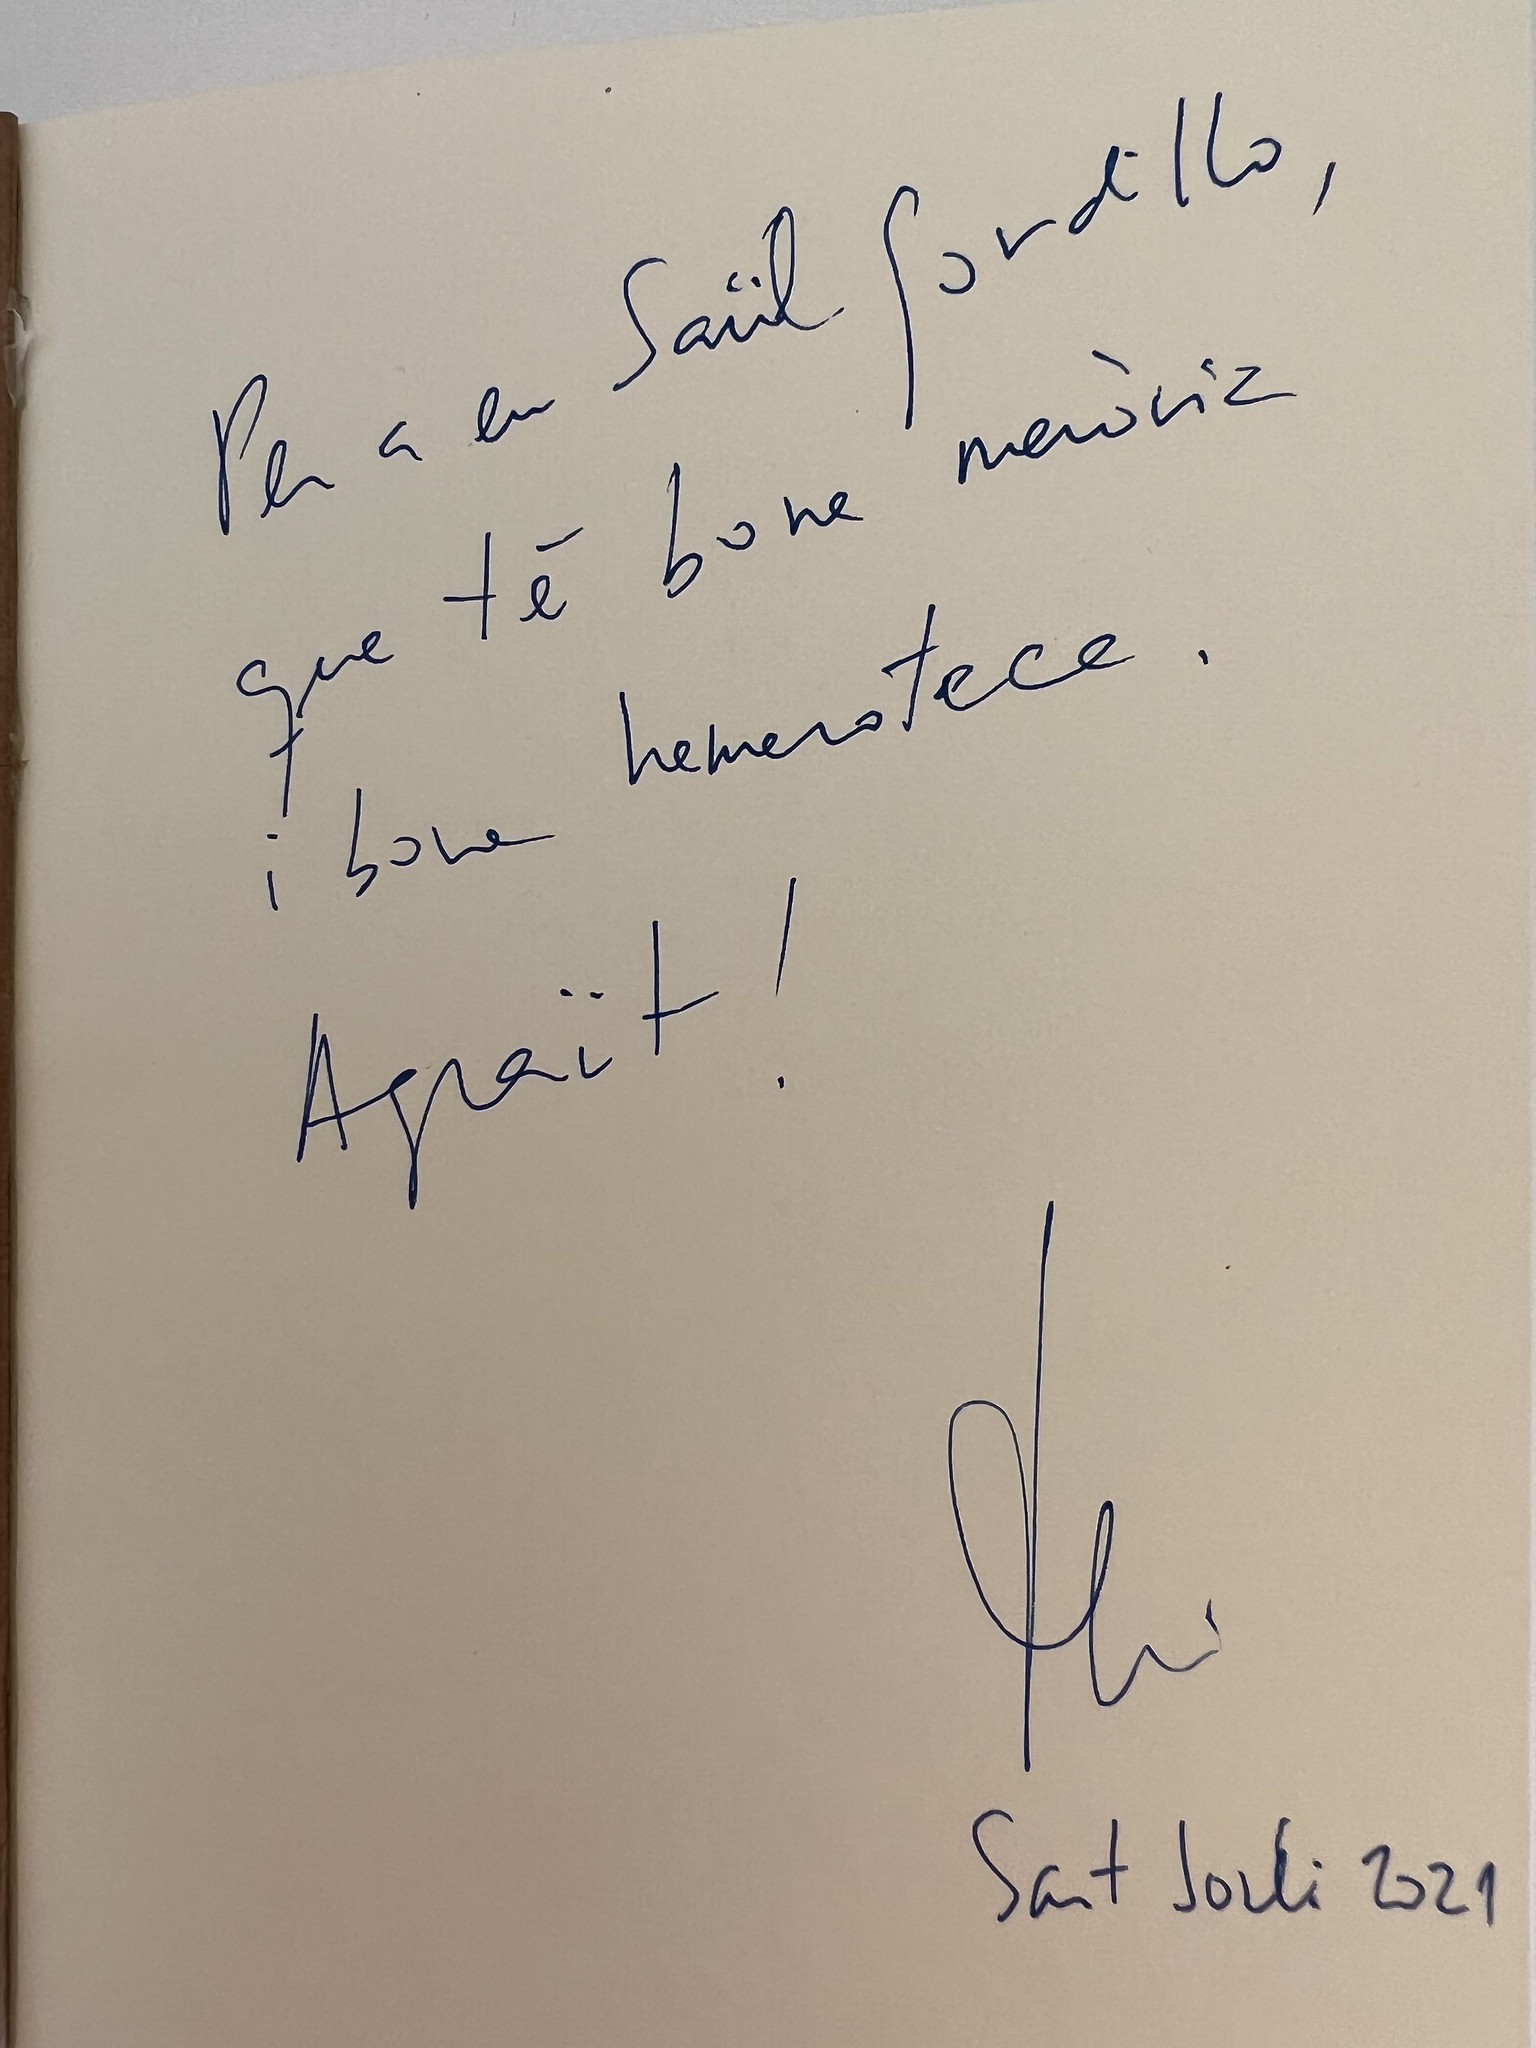 Per a en Saül Gordillo,
que té bona memòria
i bona hemeroteca.
Agraït!
Sant Jordi 2021